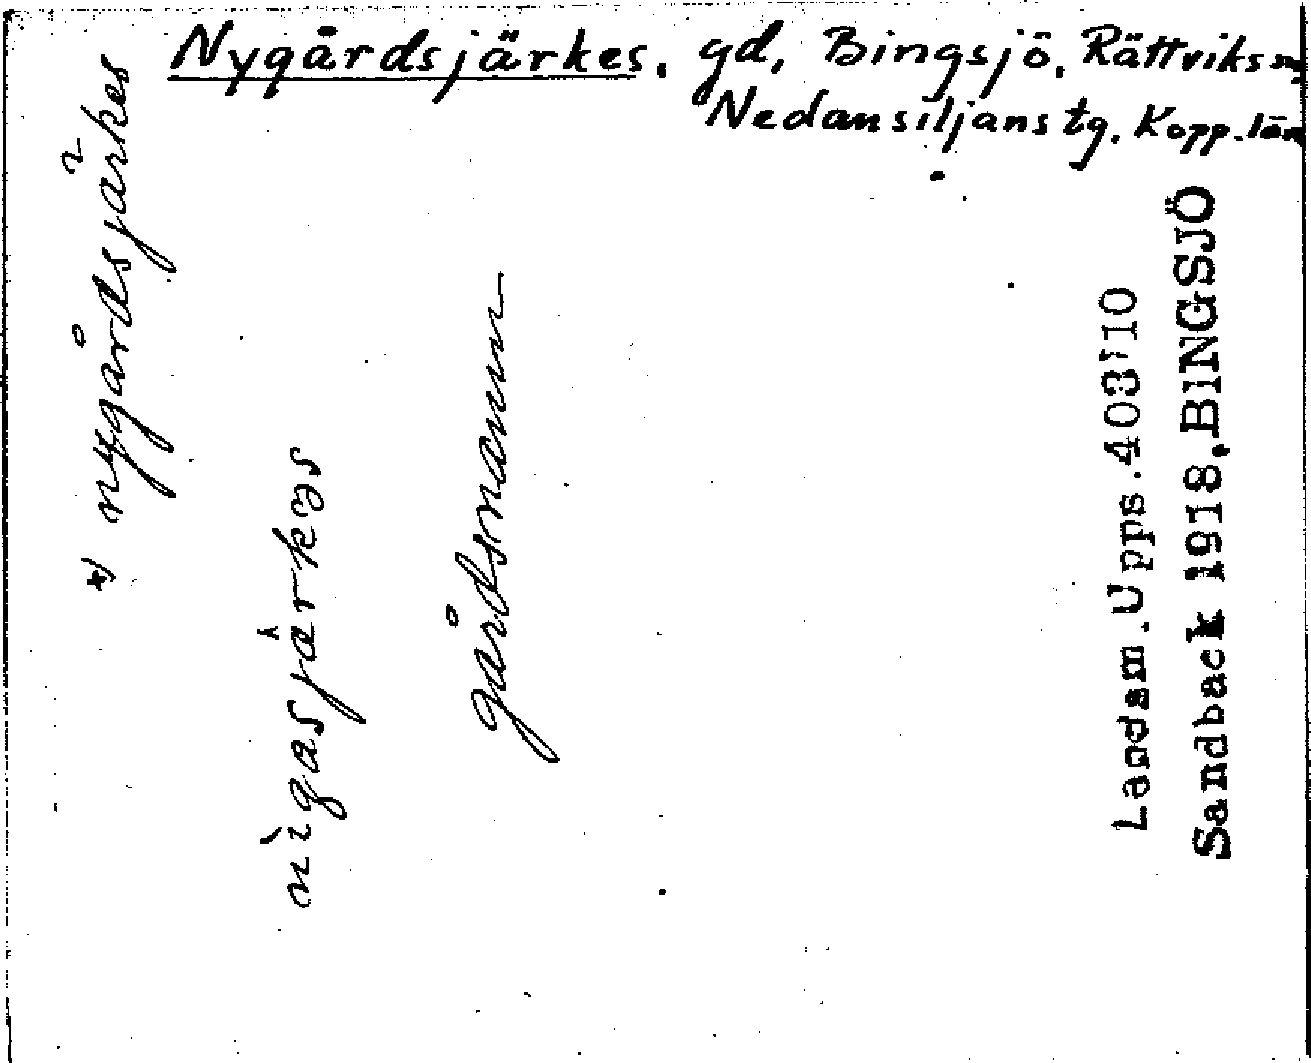 Nygårdsjärkes, gd, Bingsjö, Rättviks sn,
Nedansiljans tg. Kopp. län
*) nygårdsjärkes
nìgasjärkəs
gårdsnamn
Landsm. Upps. 403:10
Sandback 1918, BINGSJÖ